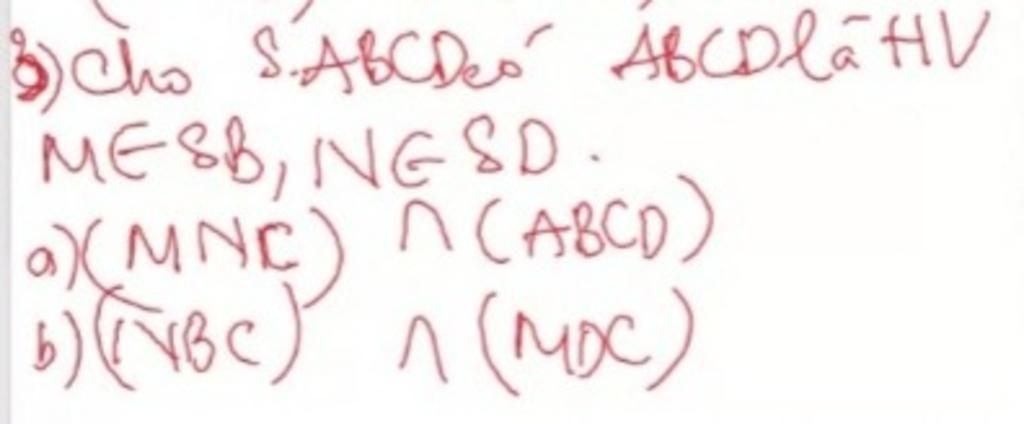 3) Cho S.ABCD có ABCD là HV
M ∈ SB, N ∈ SD.
a) (MNC) ∩ (ABCD)
b) (NBC) ∩ (MDC)